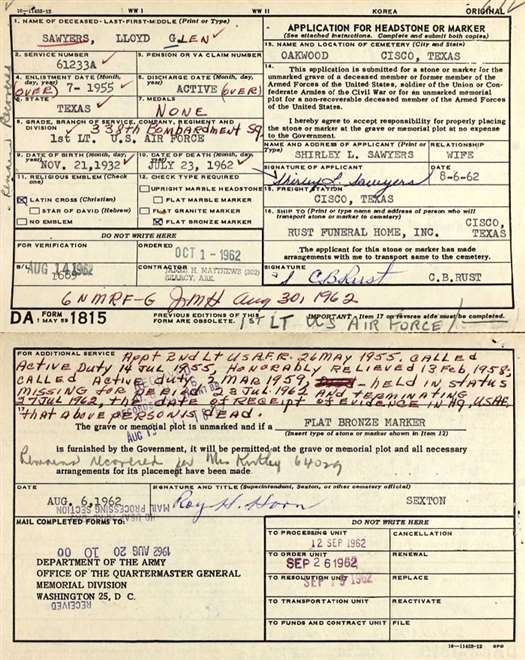 16—11452-12 WW I WW II KOREA ORIGINAL
1. NAME OF DECEASED-LAST-FIRST-MIDDLE (Print or Type)
SAWYERS, LLOYD GLEN
APPLICATION FOR HEADSTONE OR MARKER
(See attached Instructions. Complete and submit both copies)
2. SERVICE NUMBER
61233A
3. PENSION OR VA CLAIM NUMBER
13. NAME AND LOCATION OF CEMETERY (City and State)
OAKWOOD CISCO, TEXAS
4. ENLISTMENT DATE (Month, day, year)
(OVER) 7- 1955
5. DISCHARGE DATE (Month, day, year)
ACTIVE (OVER)
6. STATE
TEXAS
7. MEDALS
NONE
14.
This application is submitted for a stone or marker for the unmarked grave of a deceased member or former member of the Armed Forces of the United States, soldier of the Union or Confederate Armies of the Civil War or for an unmarked memorial plot for a non-recoverable deceased member of the Armed Forces of the United States.
I hereby agree to accept responsibility for properly placing the stone or marker at the grave or memorial plot at no expense to the Government.
8. GRADE, BRANCH OF SERVICE, COMPANY, REGIMENT AND DIVISION
338th Bombardment Sq.
1st LT. U.S. AIR FORCE
NAME AND ADDRESS OF APPLICANT (Print or type) RELATIONSHIP
SHIRLEY L. SAWYERS WIFE
9. DATE OF BIRTH (Month, day, year)
NOV. 21,1932
10. DATE OF DEATH (Month, day, year)
JULY 23, 1962
SIGNATURE OF APPLICANT DATE
Shirley L. Sawyers 8-6-62
11. RELIGIOUS EMBLEM (Check one)
LATIN CROSS (Christian)
STAR OF DAVID (Hebrew)
NO EMBLEM
12. CHECK TYPE REQUIRED
UPRIGHT MARBLE HEADSTONE
FLAT MARBLE MARKER
FLAT GRANITE MARKER
FLAT BRONZE MARKER
15. FREIGHT STATION
CISCO, TEXAS
16. SHIP TO (Print or type name and address of person who will transport stone or marker to cemetery)
CISCO,
RUST FUNERAL HOME, INC. TEXAS
DO NOT WRITE HERE
FOR VERIFICATION
AUG 14 1962
ORDERED
OCT 1 - 1962
The applicant for this stone or marker has made arrangements with me to transport same to the cemetery.
B/L
1689
CONTRACTOR
JAMES H. MATTHEWS
SEARCY, ARK.
SIGNATURE
C.B. Rust C.B.RUST
6NMRF-G JMH Aug 30, 1962
DA FORM 1 MAY 59 1815
PREVIOUS EDITIONS OF THIS FORM ARE OBSOLETE.
IMPORTANT - Item 17 on reverse side must be completed.
1ST LT US AIR FORCE
Remains Recovered
FOR ADDITIONAL SERVICE
Appt 2nd Lt USAFR. 26 MAY 1955. CALLED
ACTIVE DUTY 14 JUL 1955, HONORABLY RELIEVED 13 FEB 1958.
CALLED ACTIVE DUTY 2 MAR 1959, - HELD IN STATUS
MISSING FOR PERIOD 23 JUL 1962 AND TERMINATING
27 JUL 1962, THE DATE OF RECEIPT OF EVIDENCE IN HQ, USAF
THAT ABOVE PERSON IS DEAD.
17.
The grave or memorial plot is unmarked and if a FLAT BRONZE MARKER
(Insert type of stone or marker shown in Item 12)
is furnished by the Government, it will be permitted at the grave or memorial plot and all necessary
arrangements for its placement have been made.
Remains recovered per Mrs Kirtley 64029
DATE
AUG. 6,1962
SIGNATURE AND TITLE (Superintendent, Sexton, or other cemetery official)
Roy H. Horn SEXTON
MAIL PROCESSING SECTION
MAIL COMPLETED FORMS TO:
1962 AUG 20 10 00
DEPARTMENT OF THE ARMY
OFFICE OF THE QUARTERMASTER GENERAL
MEMORIAL DIVISION
WASHINGTON 25, D C.
RECEIVED
DO NOT WRITE HERE
TO PROCESSING UNIT
12 SEP 1962
CANCELLATION
TO ORDER UNIT
SEP 26 1962
RENEWAL
TO RESOLUTION UNIT
SEP 13 1962
REPLACE
TO TRANSPORTATION UNIT
REACTIVATE
TO FUNDS AND CONTRACT UNIT
FILE
16—11452-12 GPO